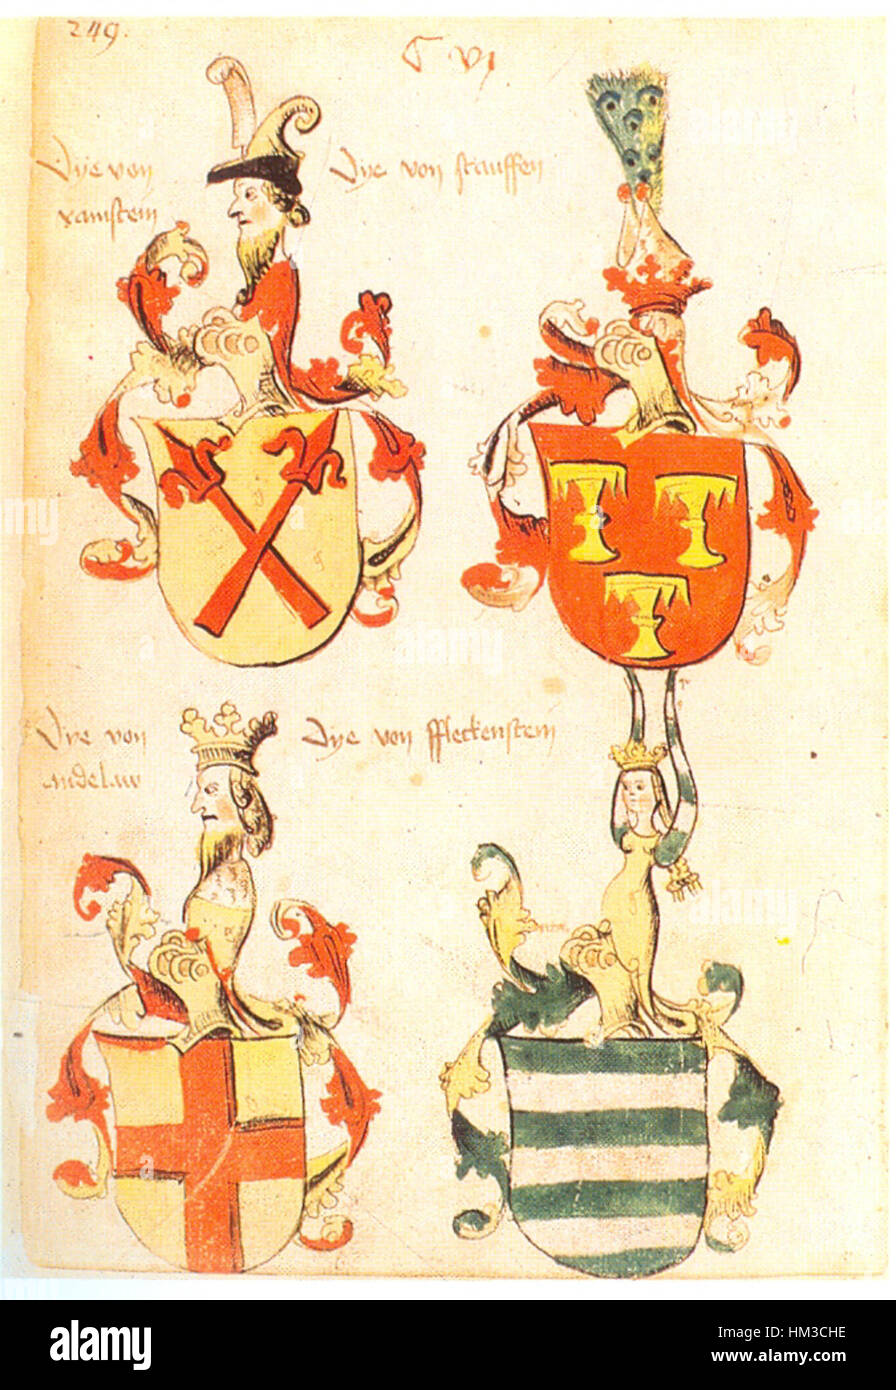 249.
C VI
Dye von
ramstein
Dye von stauffen
Dye von
andelaw
Dye von ffleckenstein
alamy
Image ID: HM3CHE
www.alamy.com